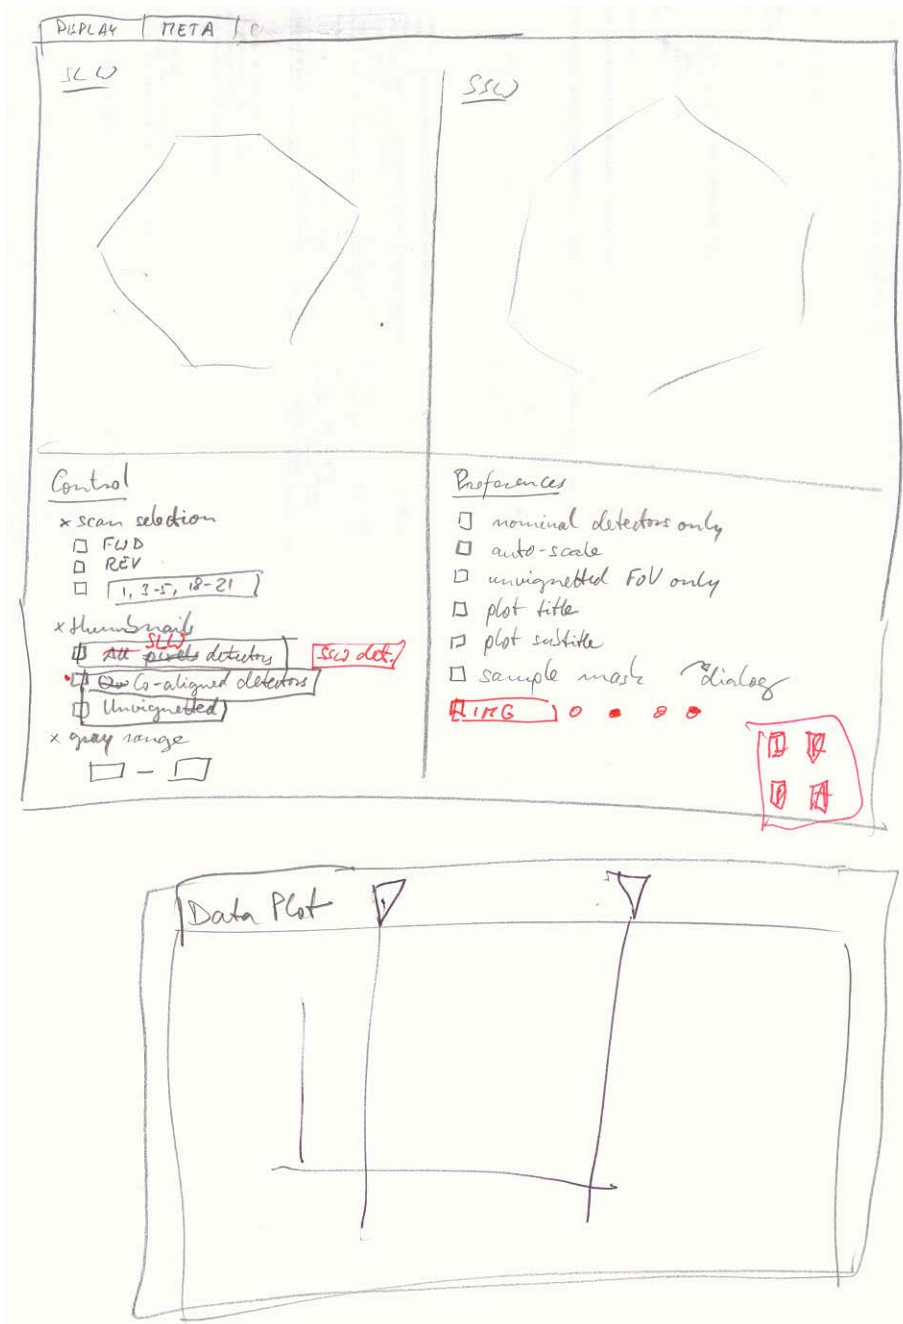 DISPLAY META
SLW
SSW
Control
x scan selection
FWD
REV
1, 3-5, 18-21
x thumbnails
SLW
All pixels detectors
SSW det.
Co-aligned detectors
Unvignetted
x gray range
–
Preferences
nominal detectors only
auto-scale
unvignetted FoV only
plot title
plot subtitle
sample mask ~dialog
IMG
Data Plot